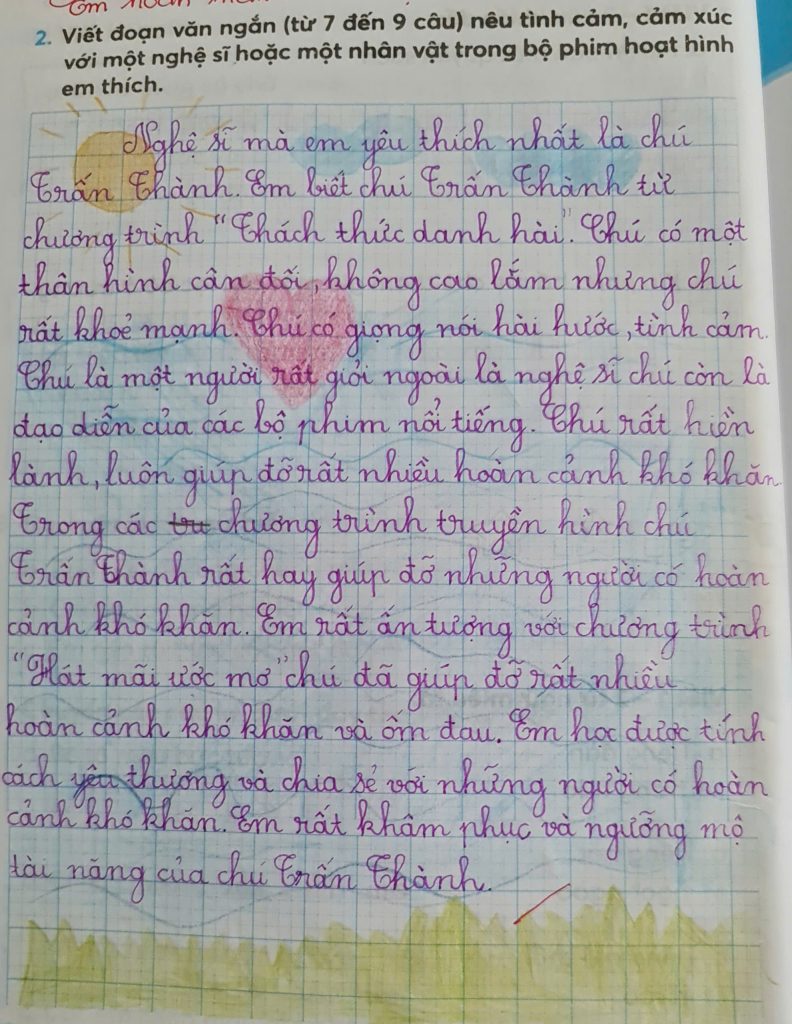 Em hoàn
2. Viết đoạn văn ngắn (từ 7 đến 9 câu) nêu tình cảm, cảm xúc
với một nghệ sĩ hoặc một nhân vật trong bộ phim hoạt hình
em thích.
Nghệ sĩ mà em yêu thích nhất là chú
Trấn Thành. Em biết chú Trấn Thành từ
chương trình "Thách thức danh hài". Chú có một
thân hình cân đối, không cao lắm nhưng chú
rất khoẻ mạnh. Chú có giọng nói hài hước, tình cảm.
Chú là một người rất giỏi ngoài là nghệ sĩ chú còn là
đạo diễn của các bộ phim nổi tiếng. Chú rất hiền
lành, luôn giúp đỡ rất nhiều hoàn cảnh khó khăn.
Trong các tru chương trình truyền hình chú
Trấn Thành rất hay giúp đỡ những người có hoàn
cảnh khó khăn. Em rất ấn tượng với chương trình
"Hát mãi ước mơ" chú đã giúp đỡ rất nhiều
hoàn cảnh khó khăn và ốm đau. Em học được tính
cách yêu thương và chia sẻ với những người có hoàn
cảnh khó khăn. Em rất khâm phục và ngưỡng mộ
tài năng của chú Trấn Thành.